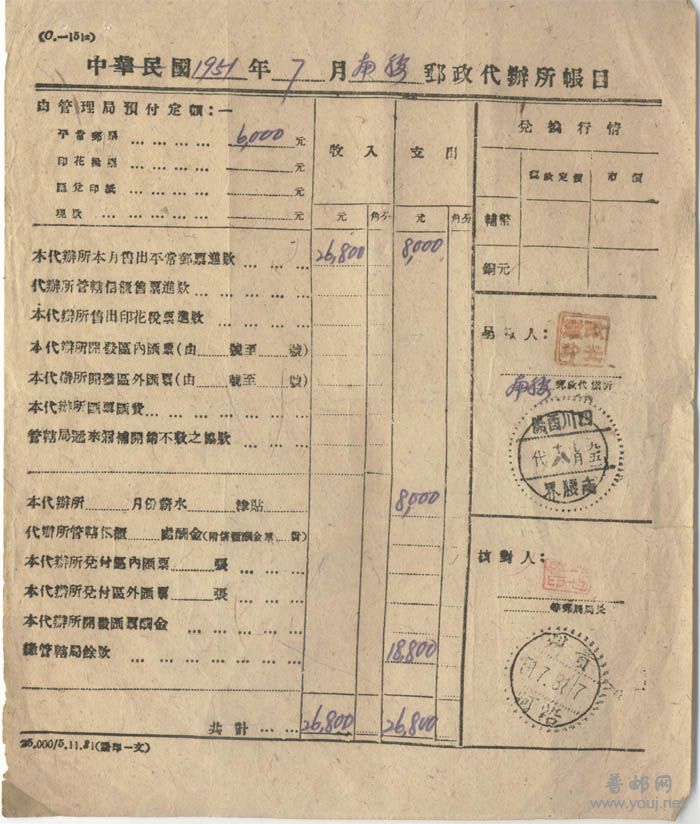 (O.—151a)
中華民國1951年7月南腰郵政代辦所帳目
由管理局預付定額：—
平常郵票 … … … … 6,000 元
印花稅票 … … … … 元
匯兌印紙 … … … … 元
現款 … … … … 元
收入 支出
元 角分 元 角分
本代辦所本月售出平常郵票進款 … … … 26,800 8,000
代辦所管轄信櫃售票進款 … … … …
本代辦所售出印花稅票進款 … … …
本代辦所開發區內匯票(由 號至 號)
本代辦所開發區外匯票(由 號至 號)
本代辦所匯票匯費 … … … …
管轄局遞來 補開銷不敷之協款 …
本代辦所 月份薪水 津貼 8,000
代辦所管轄信櫃 處酬金
本代辦所兌付區內匯票 張 … … …
本代辦所兌付區外匯票 張 … … …
本代辦所開發匯票酬金 … … …
繳管轄局餘款 … … … … 18,800
共計 … … … 26,800 26,800
25,000/5.11.31
兌換行情
郵政定價 市價
輔幣
銅元
人：
南腰 郵政代辦所
四川酉陽
代
南腰界
核對人：
等郵局局長
7.31.17
普邮网
www.youj.net